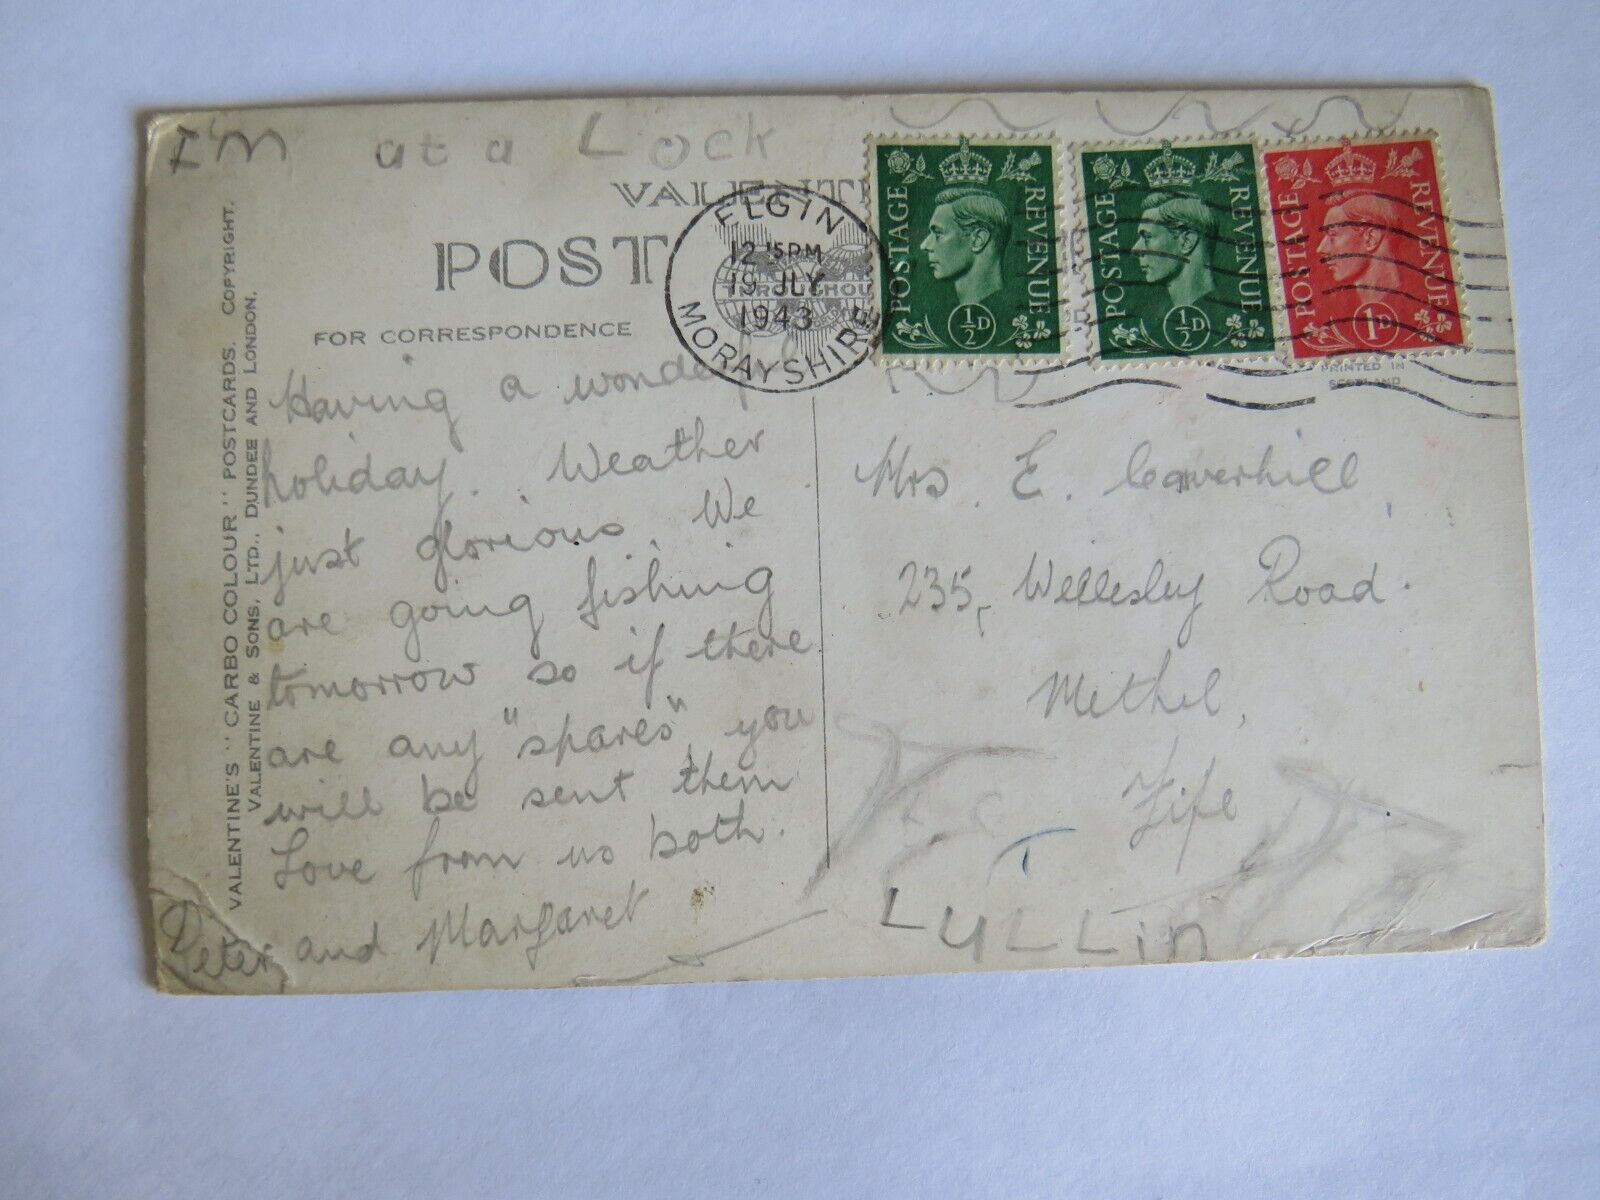 I'm at a Lock
VALENT
POST
FOR CORRESPONDENCE
VALENTINE'S "CARBO COLOUR" POSTCARDS. COPYRIGHT.
VALENTINE & SONS, LTD., DUNDEE AND LONDON.
ELGIN
12 15PM
19 JLY
1943
MORAYSHIRE
POSTAGE REVENUE
½D
POSTAGE REVENUE
½D
POSTAGE REVENUE
1D
PRINTED IN
SCOTLAND
Having a wonderful
holiday. Weather
just glorious. We
are going fishing
tomorrow so if there
are any "spares", you
will be sent them
Love from us both.
Peter and Margaret
Mrs. E. Caverhill,
235, Wellesley Road.
Methil,
Fife
LyLLin